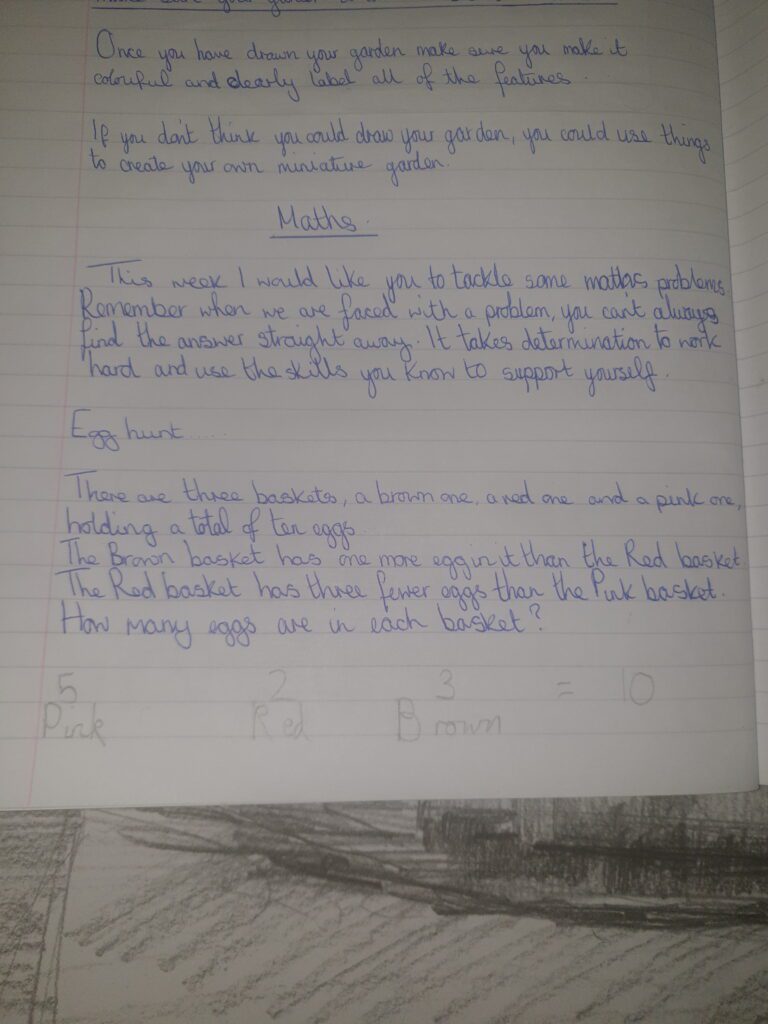 your garden
Once you have drawn your garden make sure you make it
colourful and clearly label all of the features.
If you don't think you could draw your garden, you could use things
to create your own miniature garden.
Maths.
This week I would like you to tackle some maths problems
Remember when we are faced with a problem, you can't always
find the answer straight away. It takes determination to work
hard and use the skills you know to support yourself.
Egg hunt.....
There are three baskets, a brown one, a red one and a pink one,
holding a total of ten eggs.
The Brown basket has one more egg in it than the Red basket
The Red basket has three fewer eggs than the Pink basket.
How many eggs are in each basket?
5 2 3 = 10
Pink Red Brown